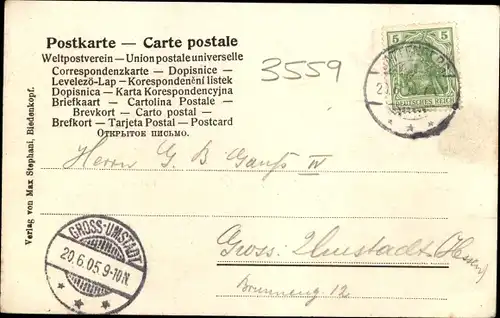 Postkarte — Carte postale
Weltpostverein — Union postale universelle
Correspondenzkarte — Dopisnice —
Levelező-Lap — Korespondenční lístek
Dopisnica — Karta Korespondencyjna
Briefkaart — Cartolina Postale —
Brevkort — Carto postal —
Brefkort — Tarjeta Postal — Postcard
ОТКРЫТОЕ ПИСЬМО.
3559
5 5
DEUTSCHES REICH
Herrn G. B. Ganß IV
Gross-Umstadt (Hessen)
Brunneng. 12
GROSS-UMSTADT
20.6.05 9-10N
Verlag von Max Stephani, Biedenkopf.